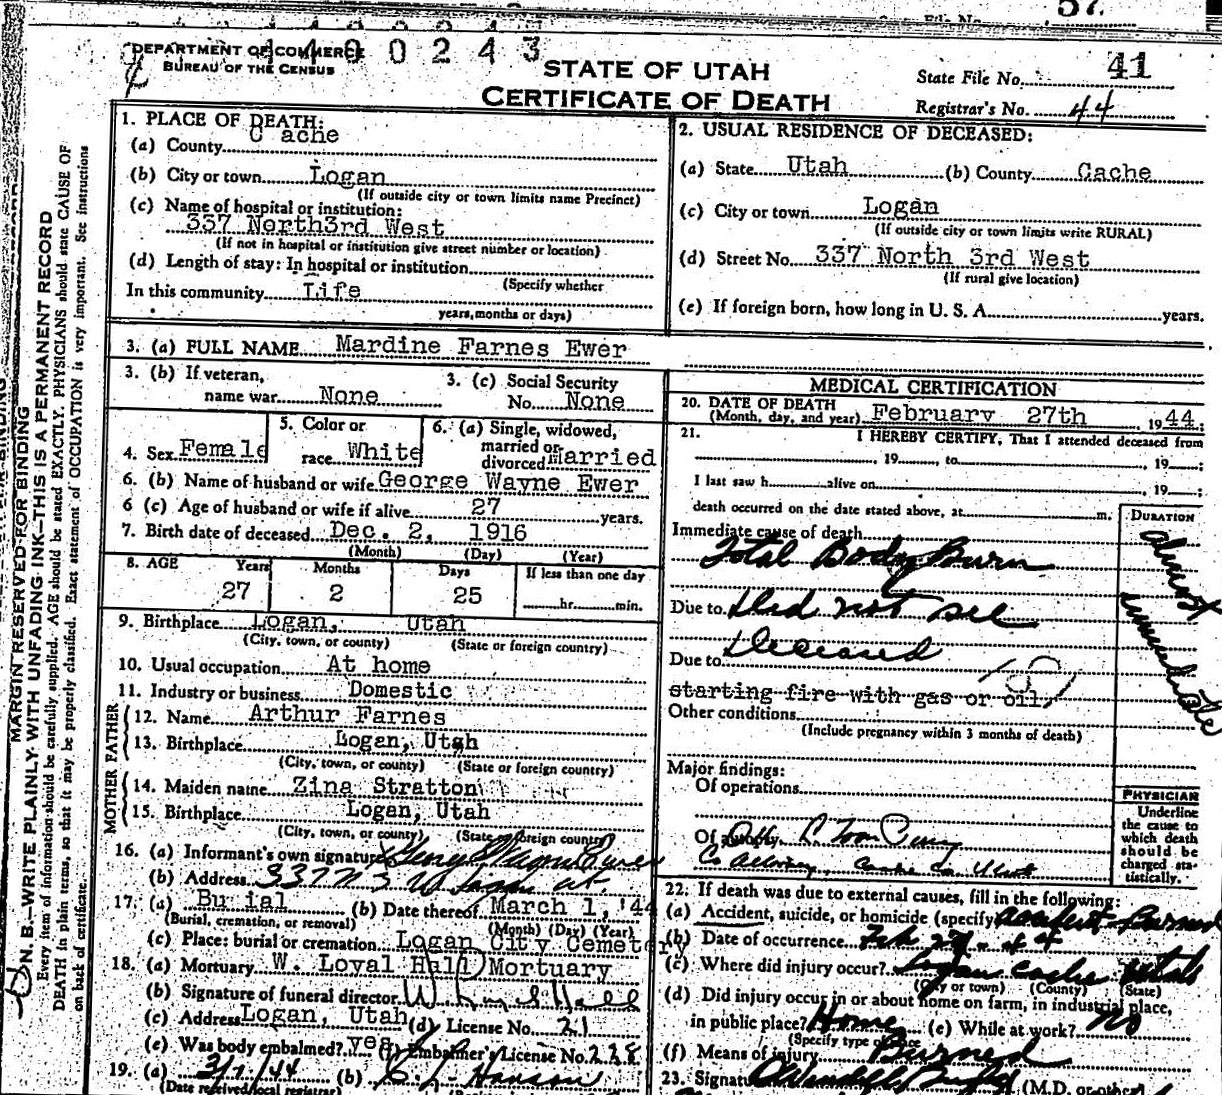 57.
File No.
4400243
DEPARTMENT OF COMMERCE
BUREAU OF THE CENSUS
STATE OF UTAH
CERTIFICATE OF DEATH
State File No. 41
Registrar's No. 44
MARGIN RESERVED FOR BINDING
N. B.—WRITE PLAINLY WITH UNFADING INK—THIS IS A PERMANENT RECORD
Every item of information should be carefully supplied. AGE should be stated EXACTLY. PHYSICIANS should state CAUSE OF
DEATH in plain terms, so that it may be properly classified. Exact statement of OCCUPATION is very important. See instructions
on back of certificate.
1. PLACE OF DEATH:
(a) County Cache
(b) City or town Logan
(If outside city or town limits name Precinct)
(c) Name of hospital or institution:
337 North3rd West
(If not in hospital or institution give street number or location)
(d) Length of stay: In hospital or institution
(Specify whether
In this community Life
years, months or days)
2. USUAL RESIDENCE OF DECEASED:
(a) State Utah (b) County Cache
(c) City or town Logan
(If outside city or town limits write RURAL)
(d) Street No. 337 North 3rd West
(If rural give location)
(e) If foreign born, how long in U. S. A. years.
3. (a) FULL NAME Mardine Farnes Ewer
3. (b) If veteran, name war None
3. (c) Social Security No. None
4. Sex Female
5. Color or race White
6. (a) Single, widowed, married or divorced Married
6. (b) Name of husband or wife George Wayne Ewer
6 (c) Age of husband or wife if alive 27 years.
7. Birth date of deceased Dec. 2, 1916
(Month) (Day) (Year)
8. AGE Years Months Days If less than one day
27 2 25 hr. min.
9. Birthplace Logan, Utah
(City, town, or county) (State or foreign country)
10. Usual occupation At home
11. Industry or business Domestic
FATHER
12. Name Arthur Farnes
13. Birthplace Logan, Utah
(City, town, or county) (State or foreign country)
MOTHER
14. Maiden name Zina Stratton
15. Birthplace Logan, Utah
(City, town, or county) (State or foreign country)
16. (a) Informant's own signature
(b) Address 337 N 3 W Logan Ut.
17. (a) Burial (b) Date thereof March 1, '44
(Burial, cremation, or removal) (Month) (Day) (Year)
(c) Place: burial or cremation Logan City Cemetery
18. (a) Mortuary W. Loyal Hall Mortuary
(b) Signature of funeral director W. Loyal Hall
(c) Address Logan, Utah (d) License No. 21
(e) Was body embalmed? yes (f) Embalmer's License No. 228
19. (a) 3/1/44 (b) Hanson
(Date received local registrar)
MEDICAL CERTIFICATION
20. DATE OF DEATH
(Month, day, and year) February 27th 1944;
21. I HEREBY CERTIFY, That I attended deceased from
, 19 , to , 19 ;
I last saw h alive on , 19 ;
death occurred on the date stated above, at m.
DURATION
Immediate cause of death
Total Body Burn
almost immediate
Due to Did not see
Deceased
Due to
starting fire with gas or oil,
Other conditions
(Include pregnancy within 3 months of death)
Major findings:
Of operations
Of autopsy
Co Attorney, Cache Co. Utah
PHYSICIAN
Underline
the cause to
which death
should be
charged sta-
tistically.
22. If death was due to external causes, fill in the following:
(a) Accident, suicide, or homicide (specify) accident Burned
(b) Date of occurrence Feb 27 - 44
(c) Where did injury occur? Logan Cache Utah
(City or town) (County) (State)
(d) Did injury occur in or about home on farm, in industrial place,
in public place? Home (e) While at work? No
(Specify type of place
(f) Means of injury Burned
23. Signature (M.D. or other)